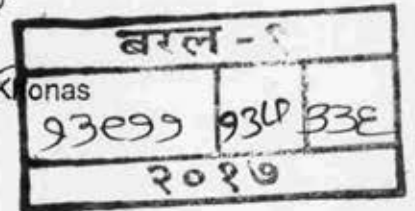 बरल - १
onas
१३९११ १३५ ३३६
२०१७